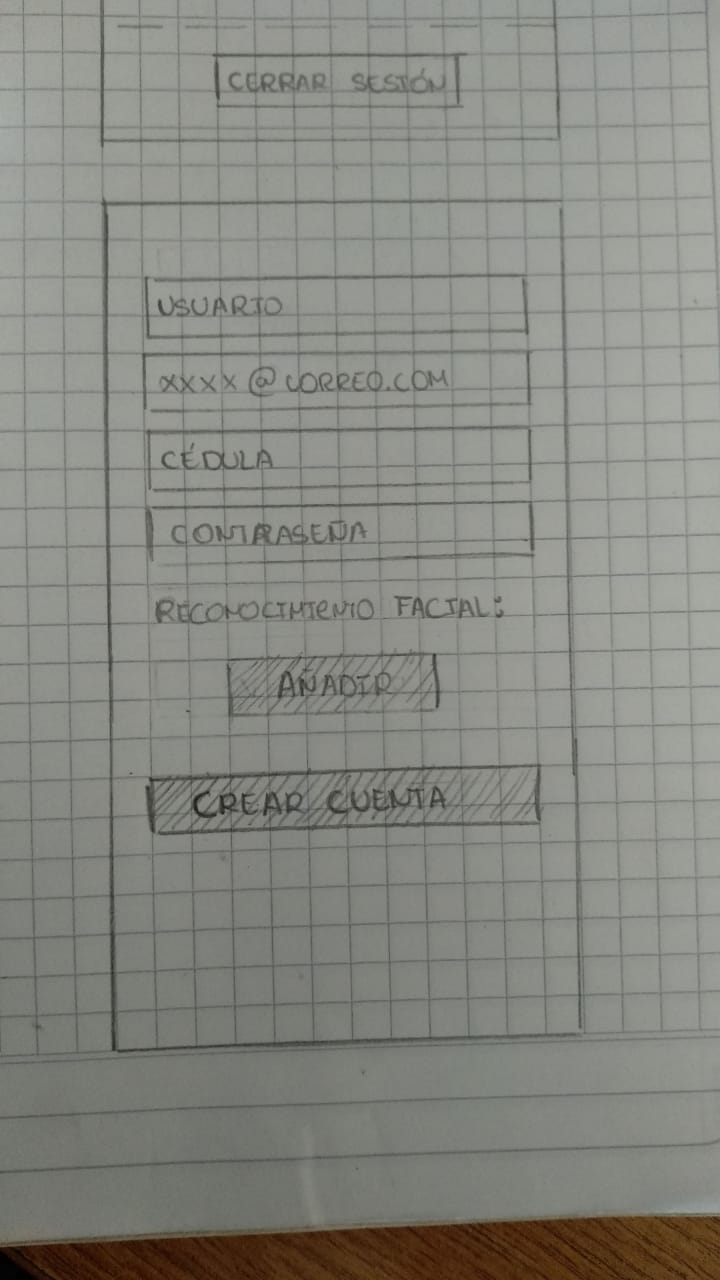 CERRAR SESIÓN
USUARIO
XXXX@CORREO.COM
CÉDULA
CONTRASEÑA
RECONOCIMIENTO FACIAL:
AÑADIR
CREAR CUENTA